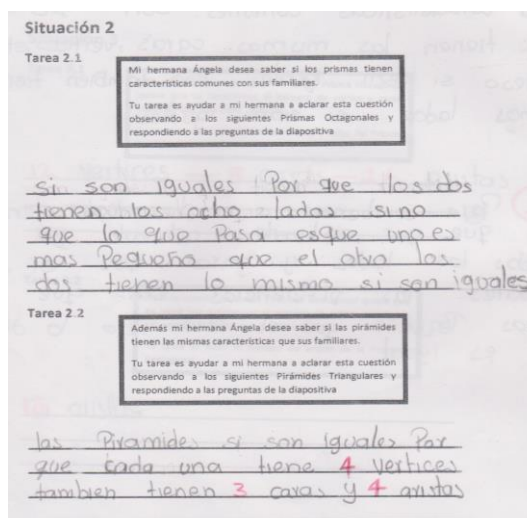 Situación 2
Tarea 2.1
Mi hermana Ángela desea saber si los prismas tienen
características comunes con sus familiares.
Tu tarea es ayudar a mi hermana a aclarar esta cuestión
observando a los siguientes Prismas Octagonales y
respondiendo a las preguntas de la diapositiva
Si son iguales Por que los dos
tienen los ocho lados sino
que lo que Pasa esque uno es
mas Pequeño que el otro los
dos tienen lo mismo si son iguales
Tarea 2.2
Además mi hermana Ángela desea saber si las pirámides
tienen las mismas características que sus familiares.
Tu tarea es ayudar a mi hermana a aclarar esta cuestión
observando a los siguientes Pirámides Triangulares y
respondiendo a las preguntas de la diapositiva
las Piramides si son iguales Por
que cada una tiene 4 vertices
tambien tienen 3 caras y 4 aristas